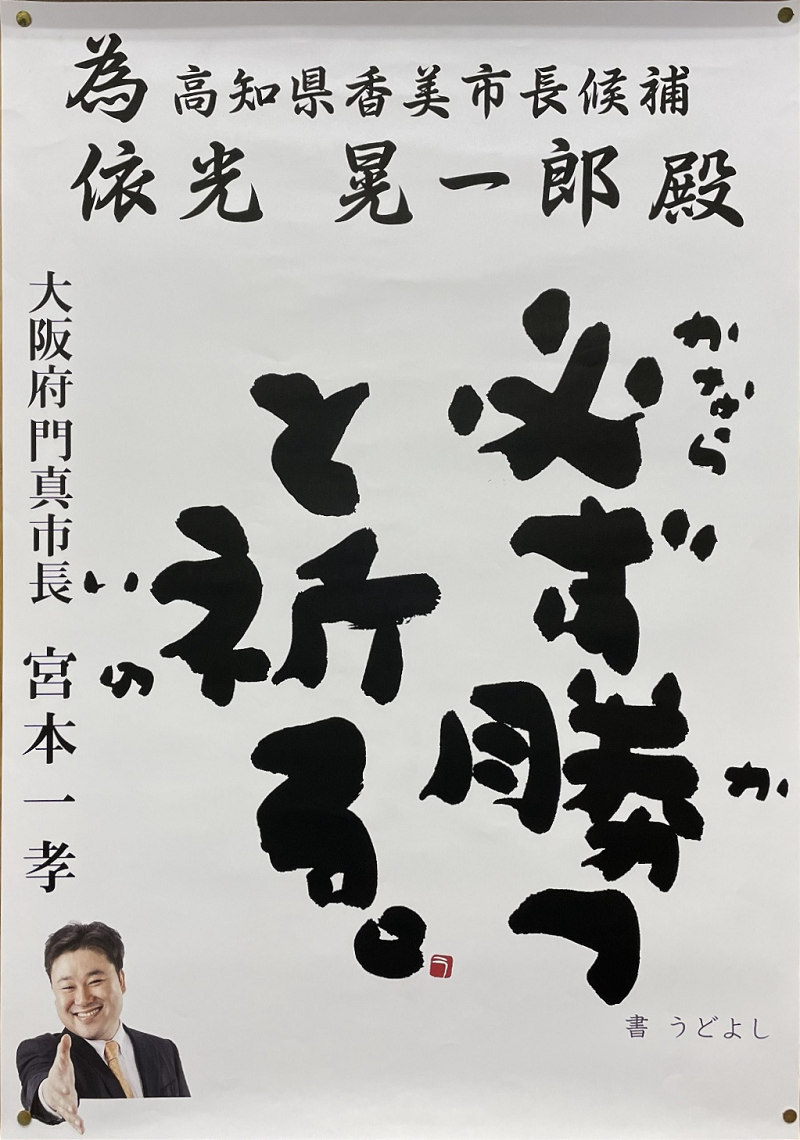 為 高知県香美市長候補
依光 晃一郎 殿
かなら
必ず勝つ
か
と祈る。
いの
う
大阪府門真市長 宮本一孝
書 うどよし